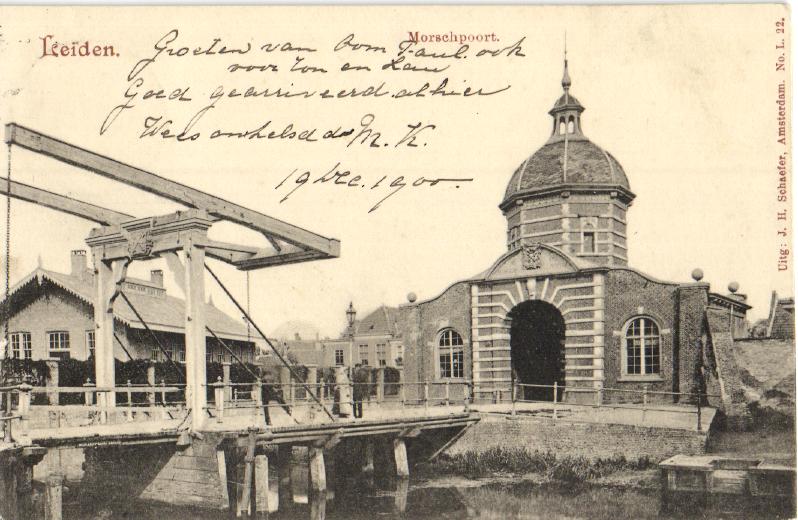 Leiden.
Morschpoort.
Groeten van Oom Paul. ook
voor Ton en
Goed gearriveerd alhier
Wees omhelsd M. K.
19 Dec. 1900.
Uitg: J. H. Schaefer, Amsterdam. No. L. 22.